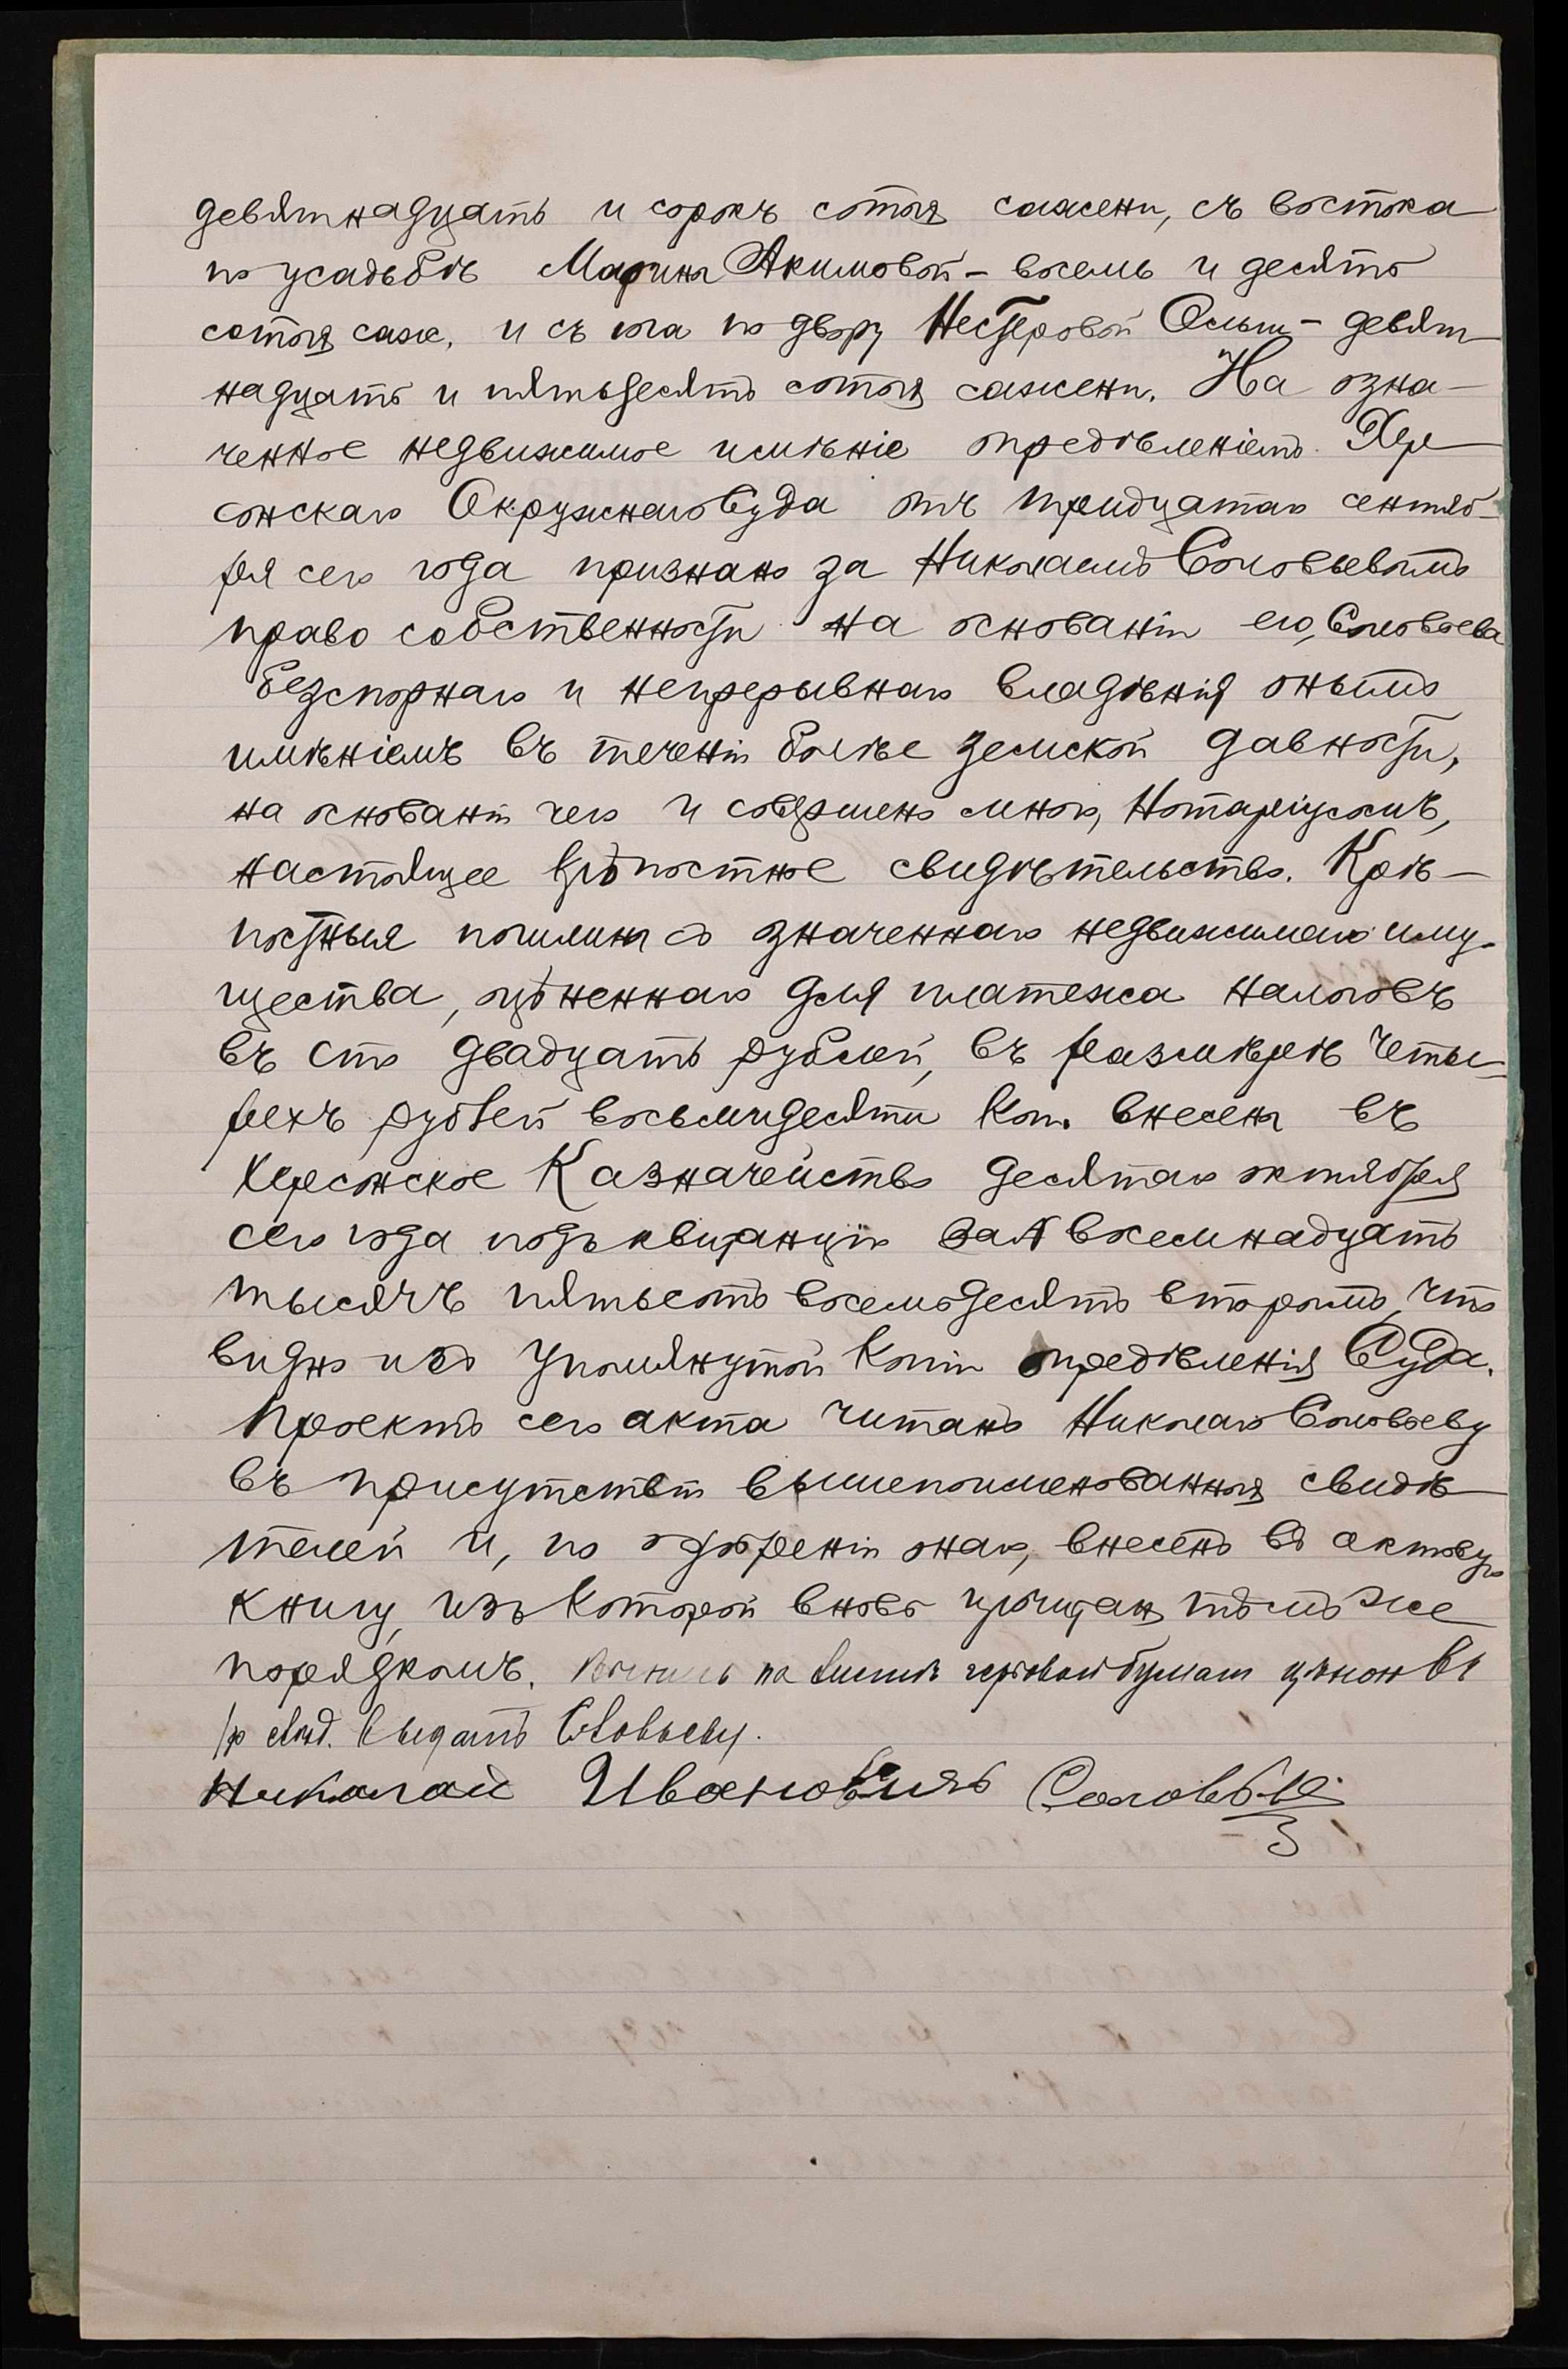 девятнадцать и сорокъ сотыхъ сажени, съ востока
по усадьбѣ Марины Акимовой – восемь и десять
сотыхъ саж. и съ юга по двору Нестеровой Ольги – девят-
надцать и пятьдесятъ сотыхъ сажени. На озна-
ченное недвижимое имѣніе опредѣленіемъ Хер-
сонскаго Окружнаго Суда отъ тридцатаго сентяб-
ря сего года признано за Николаемъ Соловьевымъ
право собственности на основаніи его, Соловьева
безспорнаго и непрерывнаго владѣнія онымъ
имѣніемъ въ теченіи болѣе земской давности,
на основаніи чего и совершено мною, Нотаріусомъ,
настоящее крѣпостное свидѣтельство. Крѣ-
постныя пошлины съ означеннаго недвижимаго иму-
щества, оцѣненнаго для платежа налоговъ
въ сто двадцать рублей, въ размѣрѣ четы-
рехъ рублей восьмидесяти коп. внесены въ
Херсонское Казначейство десятаго октября
сего года подъ квитанцію за № восемнадцать
тысячъ пятьсотъ восемьдесятъ вторымъ, что
видно изъ упомянутой копіи опредѣленія Суда.
Проектъ сего акта читанъ Николаю Соловьеву
въ присутствіи вышепоименованныхъ свидѣ-
телей и, по одобреніи онаго, внесенъ въ актовую
книгу, изъ которой вновь прочитанъ тѣмъ же
порядкомъ. на листѣ гербовой бумаги цѣною въ
1 р выдать Соловьеву.
Николай Ивановичъ Соловьев